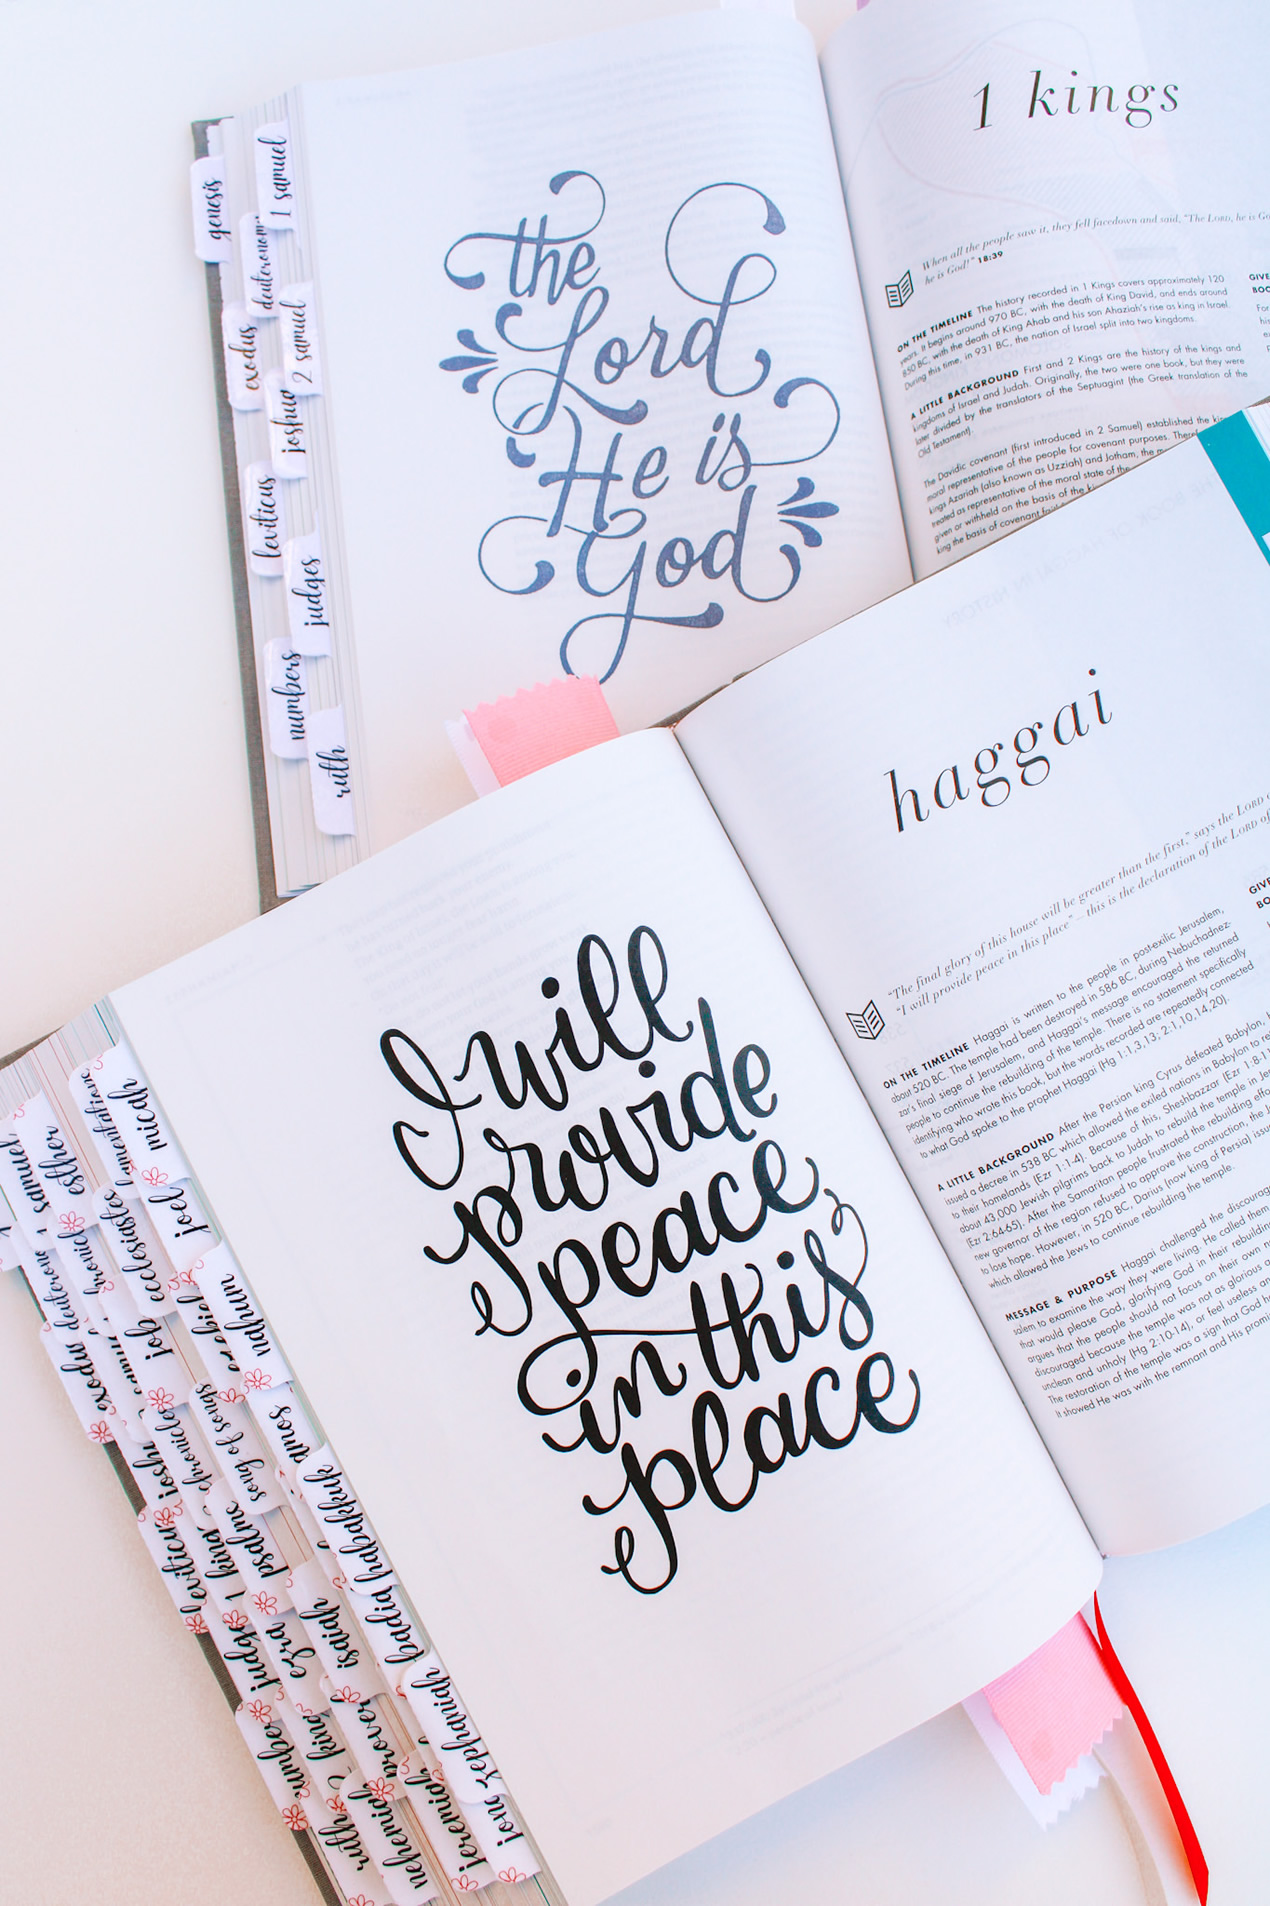 genesis
1 samuel
exodus
2 samuel
joshua
leviticus
judges
numbers
ruth
the
Lord
He is
God
1 kings
When all the people saw it, they fell facedown and said, "The LORD, he is
he is God!" 18:39
ON THE TIMELINE The history recorded in 1 Kings covers approximately 120
years. It begins around 970 BC, with the death of King David, and ends around
850 BC, with the death of King Ahab and his son Ahaziah's rise as king in Israel.
During this time, in 931 BC, the nation of Israel split into two kingdoms.
A LITTLE BACKGROUND First and 2 Kings are the history of the kings and
kingdoms of Israel and Judah. Originally, the two were one book, but they were
later divided by the translators of the Septuagint (the Greek translation of the
Old Testament).
The Davidic covenant (first introduced in 2 Samuel) established the
moral representative of the people for covenant purposes.
kings Azariah (also known as Uzziah) and Jotham, the
treated as representative of the moral state of the
given or withheld on the basis of the
king the basis of covenant
GIVE
BOO
For
his
I will
provide
peace
in this
place
haggai
"The final glory of this house will be greater than the first," says the LORD
"I will provide peace in this place"—this is the declaration of the LORD of
ON THE TIMELINE Haggai is written to the people in post-exilic Jerusalem,
about 520 BC. The temple had been destroyed in 586 BC, during Nebuchadnez-
zar's final siege of Jerusalem, and Haggai's message encouraged the returned
people to continue the rebuilding of the temple. There is no statement specifically
identifying who wrote this book, but the words recorded are repeatedly connected
to what God spoke to the prophet Haggai (Hg 1:1,3,13; 2:1,10,14,20).
A LITTLE BACKGROUND After the Persian king Cyrus defeated Babylon,
issued a decree in 538 BC which allowed the exiled nations in Babylon to
to their homelands (Ezr 1:1-4). Because of this, Sheshbazzar (Ezr 1:8-
about 43,000 Jewish pilgrims back to Judah to rebuild the temple in
(Ezr 2:64-65). After the Samaritan people frustrated the rebuilding
new governor of the region refused to approve the construction, the
to lose hope. However, in 520 BC, Darius (now king of Persia)
which allowed the Jews to continue rebuilding the temple.
MESSAGE & PURPOSE Haggai challenged the
salem to examine the way they were living. He called them
that would please God, glorifying God in their rebuilding
argues that the people should not focus on their own
discouraged because the temple was not as glorious
unclean and unholy (Hg 2:10-14), or feel useless
The restoration of the temple was a sign that God
It showed He was with the remnant and His
GIVE
BO
micah
esther
samuel
joel
ecclesiastes
nahum
job
chronicles
song of songs
amos
habakkuk
psalms
ezra
isaiah
zephaniah
nehemiah
jeremiah
ruth